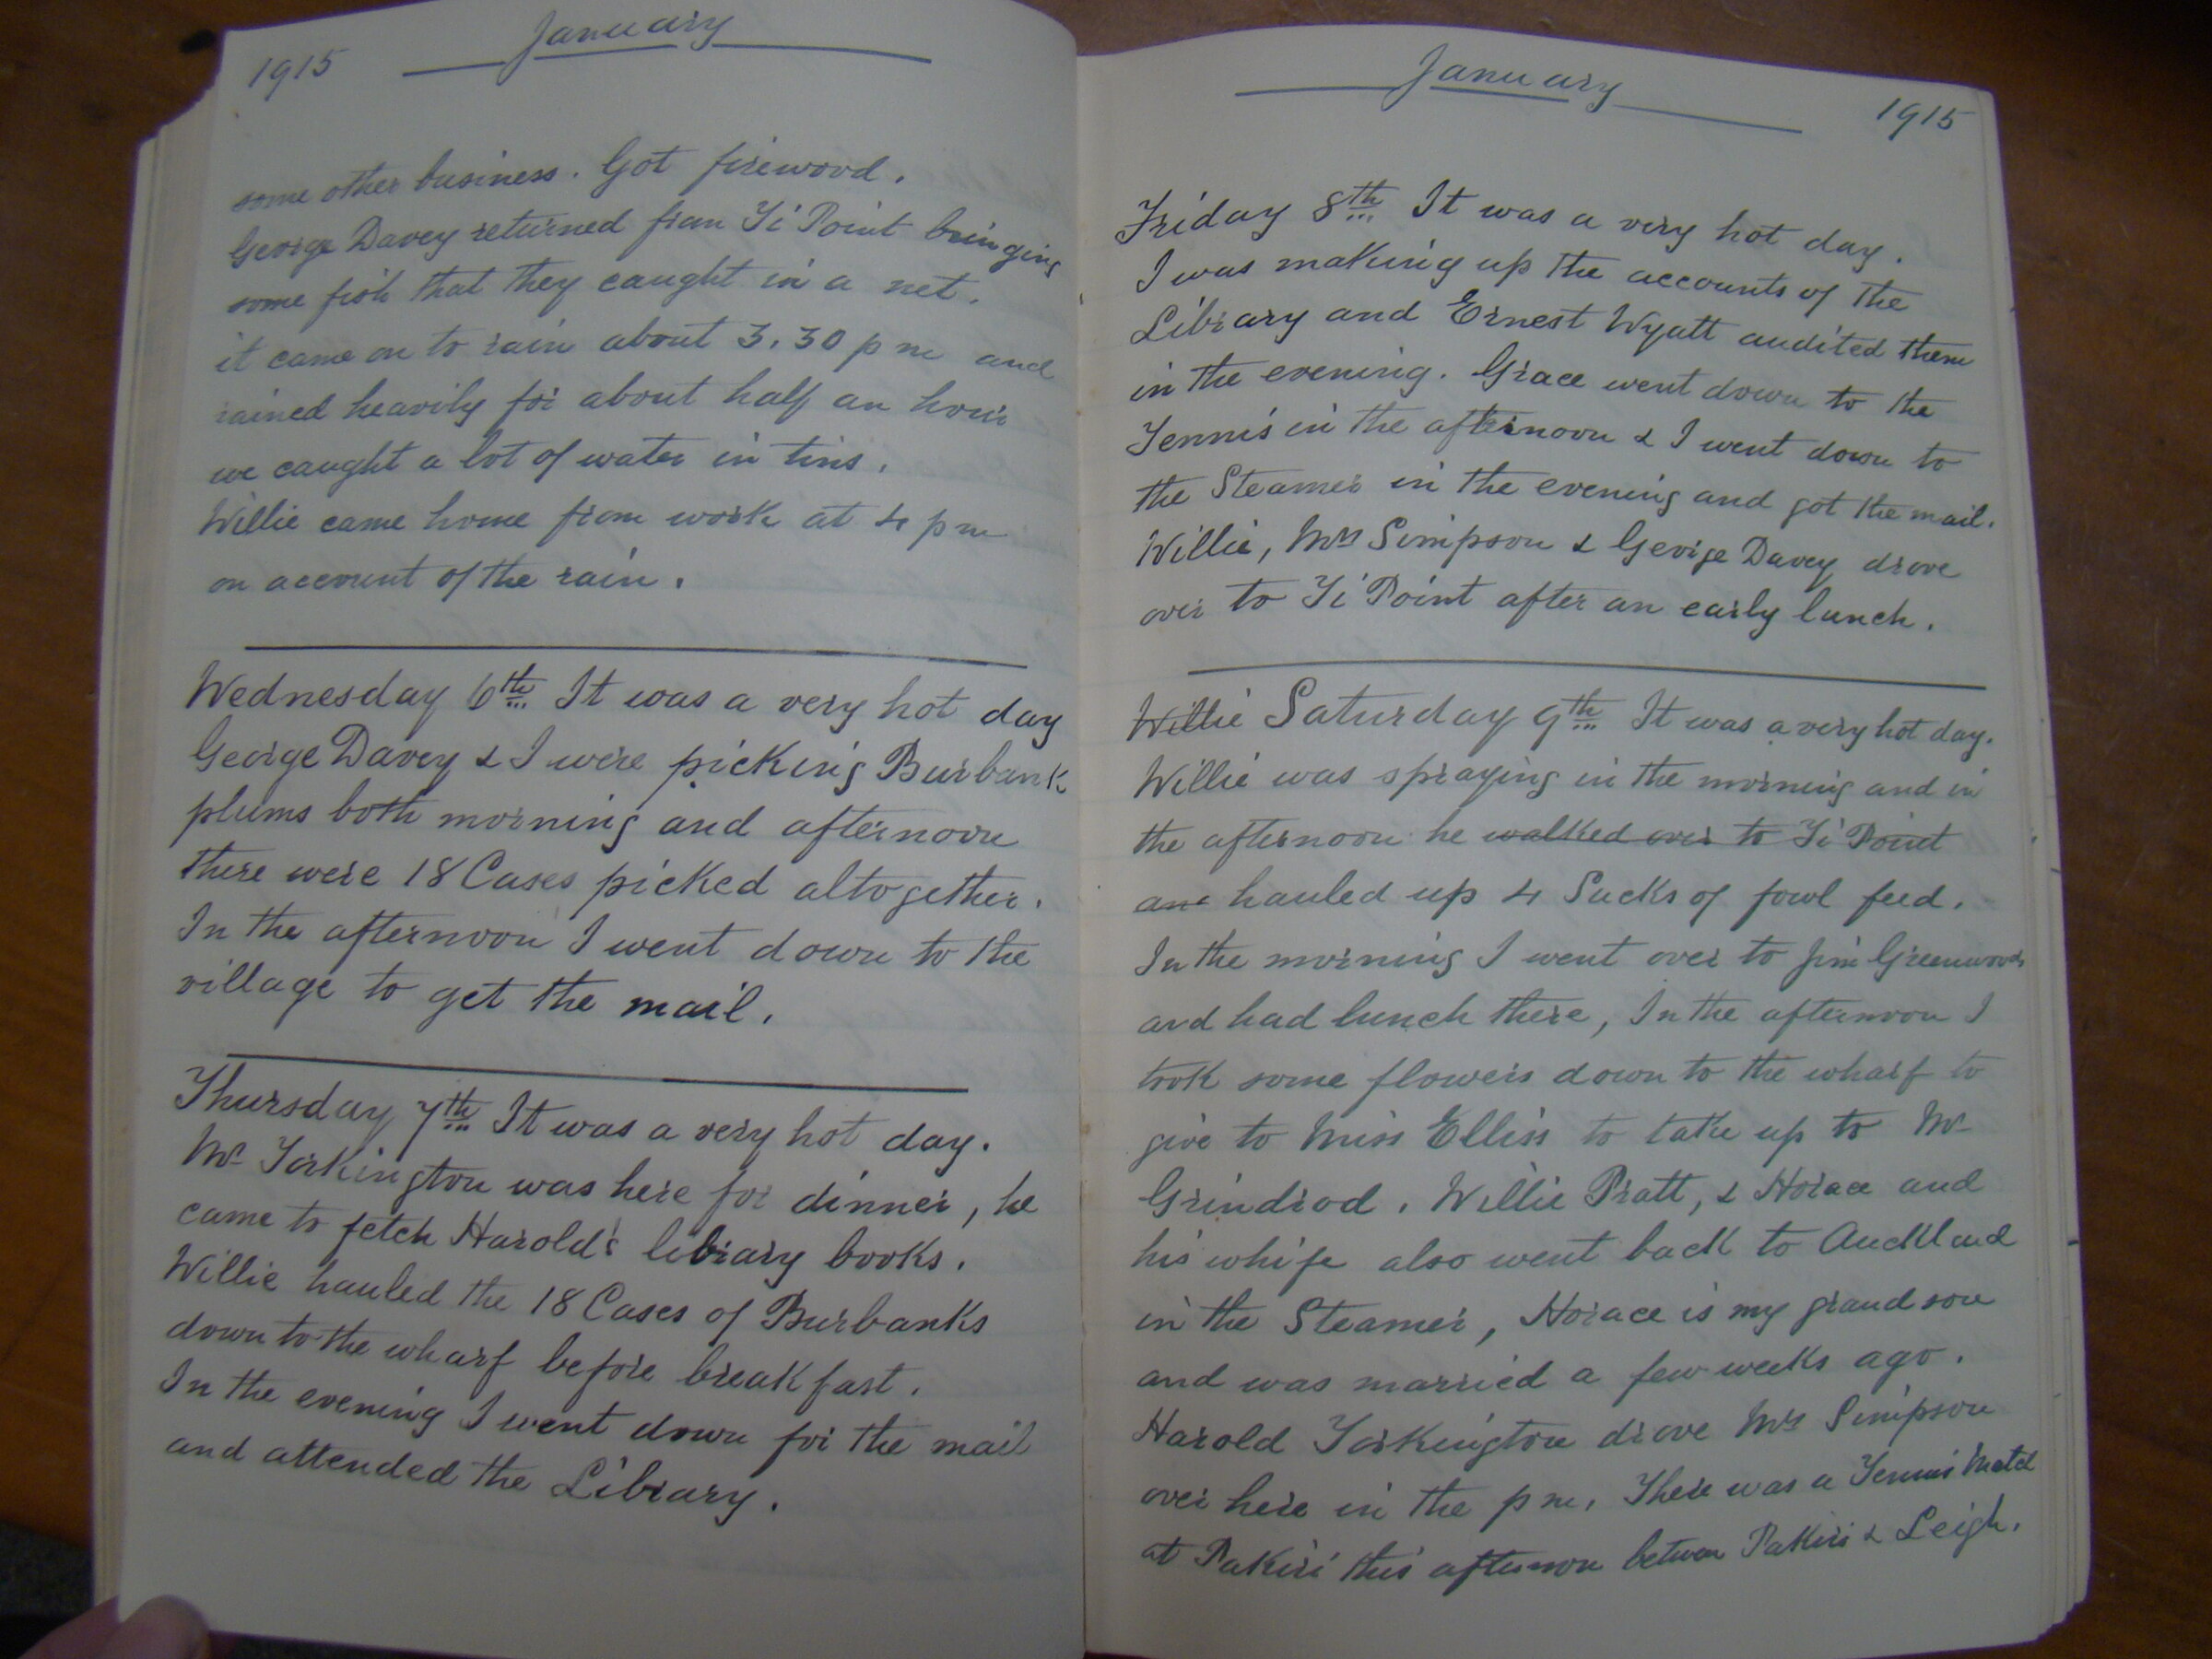 1915 January
some other business. Got firewood.
George Davey returned from Ti Point bringing
some fish that they caught in a net.
it came on to rain about 3.30 pm and
rained heavily for about half an hour
we caught a lot of water in tins.
Willie came home from work at 4 pm
on account of the rain.
Wednesday 6th It was a very hot day
George Davey & I were picking Burbank
plums both morning and afternoon
there were 18 Cases picked altogether.
In the afternoon I went down to the
village to get the mail.
Thursday 7th It was a very hot day.
Mr Torkington was here for dinner, he
came to fetch Harold's library books.
Willie hauled the 18 Cases of Burbanks
down to the wharf before breakfast.
In the evening I went down for the mail
and attended the Library.
January 1915
Friday 8th It was a very hot day.
I was making up the accounts of the
Library and Ernest Wyatt audited them
in the evening. Grace went down to the
Tennis in the afternoon & I went down to
the Steamer in the evening and got the mail.
Willie, Mrs Simpson & George Davey drove
over to Ti Point after an early lunch.
Willie Saturday 9th It was a very hot day.
Willie was spraying in the morning and in
the afternoon he walked over to Ti Point
and hauled up 4 Sacks of fowl feed.
In the morning I went over to Jim Greenwoods
and had lunch there, In the afternoon I
took some flowers down to the wharf to
give to Miss Elliss to take up to Mr
Grindrod. Willie Pratt, & Horace and
his whife also went back to Auckland
in the Steamer, Horace is my grandson
and was married a few weeks ago.
Harold Torkington drove Mrs Simpson
over here in the pm. There was a Tennis Match
at Pakiri this afternoon between Pakiri & Leigh.